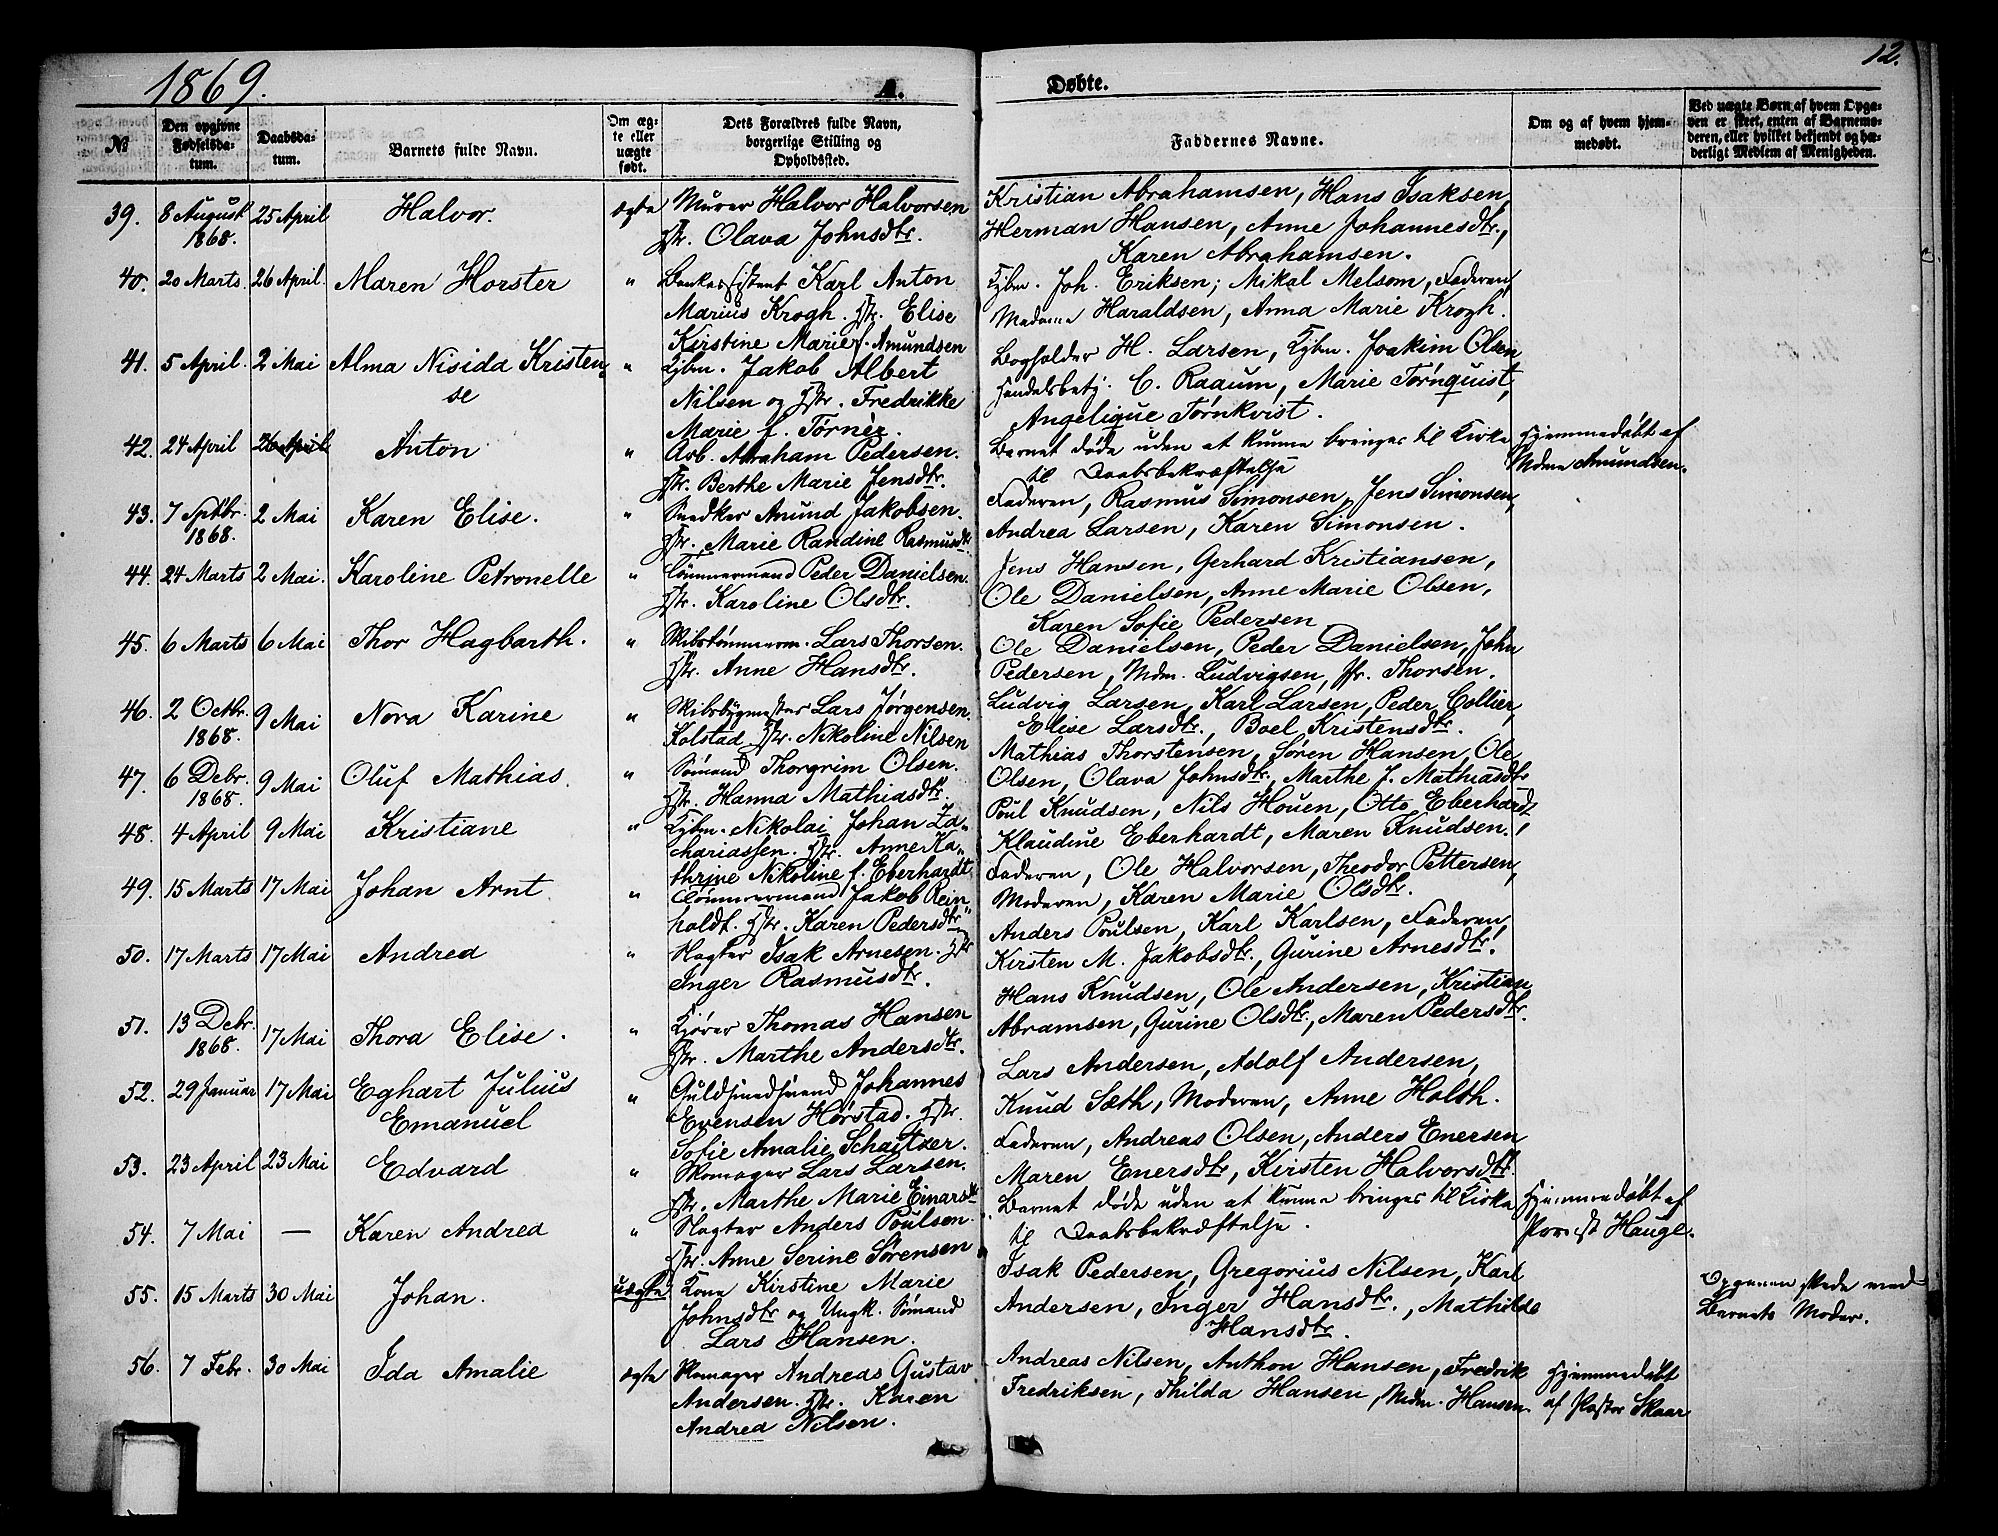 1869. A. Døbte. 12.
№ Den opgivne Fødselsdatum. Daabsdatum. Barnets fulde Navn. Om ægte eller uægte født. Dets Forældres fulde Navn, borgerlige Stilling og Opholdssted. Faddernes Navne. Om og af hvem hjemmedøbt. Ved uægte Børn af hvem Opgaven er skeet, enten af Barnemoderen, eller hvilket bekjendt og hæderligt Medlem af Menigheden.
39. 8 August 25 April Halvor. ægte Murer Halvor Halvorsen Kristian Abrahamsen, Hans Isaksen,
1868. Hstr. Olava Johnsdtr. Herman Hansen, Anne Johannesdtr.,
Karen Abrahamsen.
40. 20 Marts 26 April. Maren Horster " Bankassistent Karl Anton Kjbm. Joh. Eriksen; Mikal Melsom, Faderen,
Marius Krogh. Hstr. Elise Madame Haraldsen, Anna Marie Krogh.
Kirstine Marie f. Amundsen
41. 5 April. 2 Mai Alma Nisida Kristen- " Kjbm. Jakob Albert Bogholder H. Larsen, Kjbm. Joakim Olsen
se Nilsen og Hstr. Fredrikke Handelsbetj. C. Raaum, Marie Tørnquist,
Marie f. Törner. Angelique Tørnkvist.
42. 24 April 26 April Anton " Arb. Abraham Pedersen. Barnet døde uden at kunne bringes til Kirke Hjemmedøbt af
Hstr. Berthe Marie Jensdtr. til Daabsbekræftelse Mdme Amundsen.
43. 7 Sptbr. 2 Mai Karen Elise. " Snedker Anund Jakobsen. Faderen, Rasmus Simonsen, Jens Simonsen,
1868. Hstr. Marie Randine Rasmusdtr. Andrea Larsen, Karen Simonsen.
44. 24 Marts 2 Mai. Karoline Petronelle " Tømmermand Peder Danielsen. Jens Hansen, Gerhard Kristiansen,
Hstr. Karoline Olsdtr. Ole Danielsen, Anne Marie Olsen,
Karen Sofie Pedersen
45. 6 Marts 6 Mai Thor Hagbarth. " Skibstømmerm. Lars Thorsen. Ole Danielsen, Peder Danielsen, John
Hstr. Anne Hansdtr. Pedersen, Mdm. Ludvigsen, Jfr. Thorsen.
46. 2 Octbr. 9 Mai Nora Karine " Skibsbygmester Lars Jørgensen. Ludvig Larsen, Karl Larsen, Peder Collier,
1868. Kolstad. Hstr. Nikoline Nilsen Elise Larsdtr., Boel Kristensdtr.
47. 6 Debr. 9 Mai Oluf Mathias. " Sømand Thorgrim Olsen. Mathias Thorstensen, Søren Hansen, Ole
1868. Hstr. Hanna Mathiasdtr. Olsen, Olava Johnsdtr., Marthe J. Mathiasdtr
48. 4 April 9 Mai Kristiane " Kjbm. Nikolai Johan Za- Poul Knudsen, Nils Houen, Otto Eberhardt
chariassen. Hstr. Anne Ka- Klaudine Eberhardt, Maren Knudsen.
thrine Nikoline f. Eberhardt
49. 15 Marts 17 Mai Johan Arnt " Tømmermand Jakob Rein- Faderen, Ole Halvorsen, Theodor Pettersen,
holdt. Hstr. Karen Pedersdtr. Moderen, Karen Marie Olsdtr.
50. 17 Marts 17 Mai Andrea " Slagter Isak Arnesen. Hstr Anders Poulsen, Karl Karlsen, Faderen,
Inger Rasmusdtr. Kirsten M. Jakobsdtr., Gurine Arnesdtr.
51. 13 Debr. 17 Mai Thora Elise. " Kjører Thomas Hansen Hans Knudsen, Ole Andersen, Kristian
1868. Hstr. Marthe Andersdtr. Abramsen, Gurine Olsdtr., Maren Pedersdtr.
52. 29 Januar 17 Mai Eghart Julius " Guldsmedsvend Johannes Lars Andersen, Adolf Andersen,
Emanuel Evensen Hørstad. Hstr. Knud Sæth, Moderen, Anne Holth.
Sofie Amalie Schaitzer.
53. 23 April 23 Mai Edvard " Skomager Lars Larsen. Faderen, Andreas Olsen, Anders Enersen
Hstr. Marthe Marie Einarsdtr Maren Enersdtr, Kirsten Halvorsdtr.
54. 7 Mai — Karen Andrea " Slagter Anders Poulsen. Barnet døde uden at kunne bringes til Kirke Hjemmedøbt af
Hstr. Anne Serine Sørensen til Daabsbekræftelse. Provst Hauge.
55. 15 Marts 30 Mai Johan. uægte Kone Kirstine Marie Isak Pedersen, Gregorius Nilsen, Karl Opgaven skede ved
Johnsdtr og Ungk. Sømand Andersen, Inger Hansdtr., Mathilde Barnets Moder.
Lars Hansen. Hansdtr.
56. 7 Febr. 30 Mai Ida Amalie ægte Skomager Andreas Gustav Andreas Nilsen, Anthon Hansen, Fredrik Hjemmedøbt
Andersen. Hstr. Karen Fredriksen, Thilda Hansen, Mdm. Hansen. af Pastor Skaar
Andrea Nilsen.